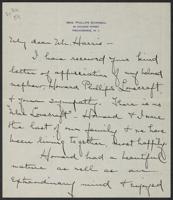 My dear Mr. Harris—
I have received your kind
letter of appreciation of my beloved
nephew, Howard Phillips Lovecraft
& your sympathy. There is no
"Mrs Lovecraft" - Howard & I were
the last of our family & we have
been living together, most happily.
Howard had a beautiful
nature as well as an
extraordinary mind & enjoyed